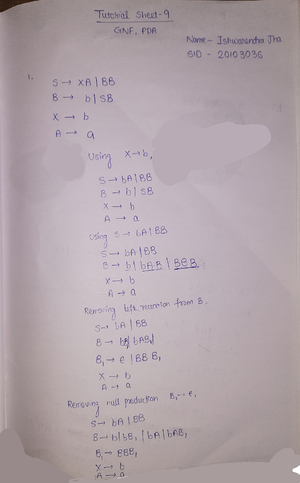 Tutorial Sheet-9
GNF, PDA
Name - Ishwarendra Jha
SID - 20103036
1.
S → XA | BB
B → b | SB
X → b
A → a
Using X → b,
S → bA | BB
B → b | SB
X → b
A → a
Using S → bA | BB
S → bA | BB
B → b | bAB | BBB
X → b
A → a
Removing left recursion from B.
S → bA | BB
B → bB₁ | bAB₁
B₁ → ε | BBB₁
X → b
A → a
Removing null production B₁ → ε,
S → bA | BB
B → b | bB₁ | bA | bAB₁
B₁ → BBB₁
X → b
A → a